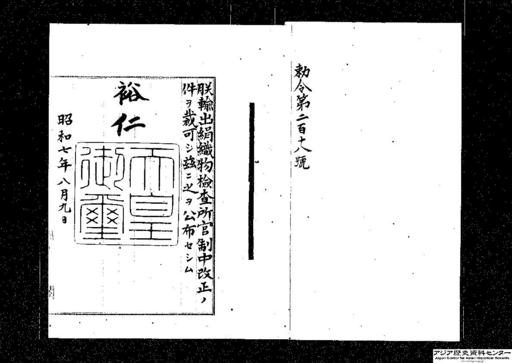 勅令第二百十八號
朕輸出絹織物檢査所官制中改正ノ
件ヲ裁可シ茲ニ之ヲ公布セシム
裕仁
天皇
御璽
昭和七年八月九日
アジア歴史資料センター
Japan Center for Asian Historical Records